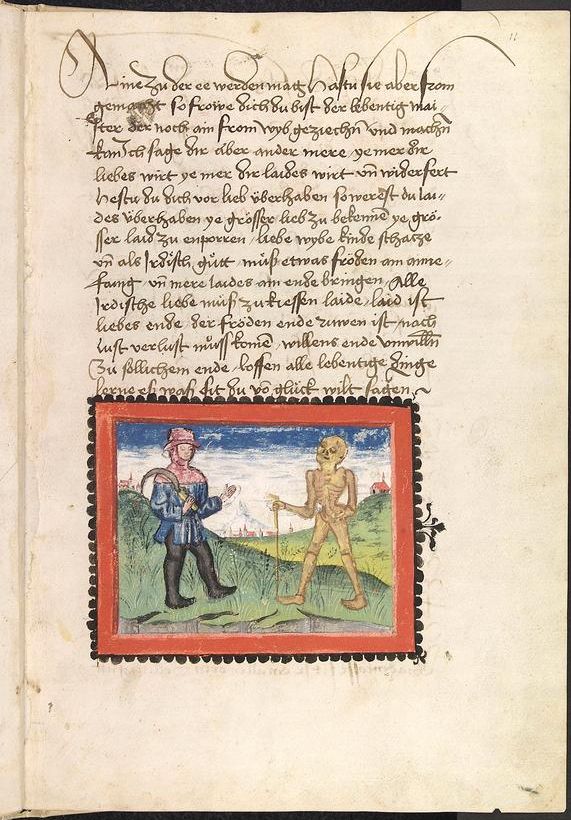 11
Aine zu der ee werden mag Hastu sie aber from
gemacht so fröwe dich du bist der lebentig mai-
ster der noch ain from wyb geziechñ vnd machñ
kan Ich sage dir aber ander mere ye mer dir
liebes wirt ye mer dir laides wirt vñ widerfert
hestu du dich vor lieb überhaben so werest du lai-
des überhaben ye grösser lieb zu bekenne ye grö-
sser laid zu enporren liebe wybe kinde schatze
vñ als Irdisch gůtt můß etwas fröden am anne-
fang vñ mere laides am ende bringen Alle
Irdische liebe můß zu kiessen laide laid ist
liebes ende der fröden ende truwen ist nach
lust verlust můss komē willens ende vnwilln
Zu sollichem ende loffen alle lebentige dinge
lerne es wass sit du vō glück wilt sagen